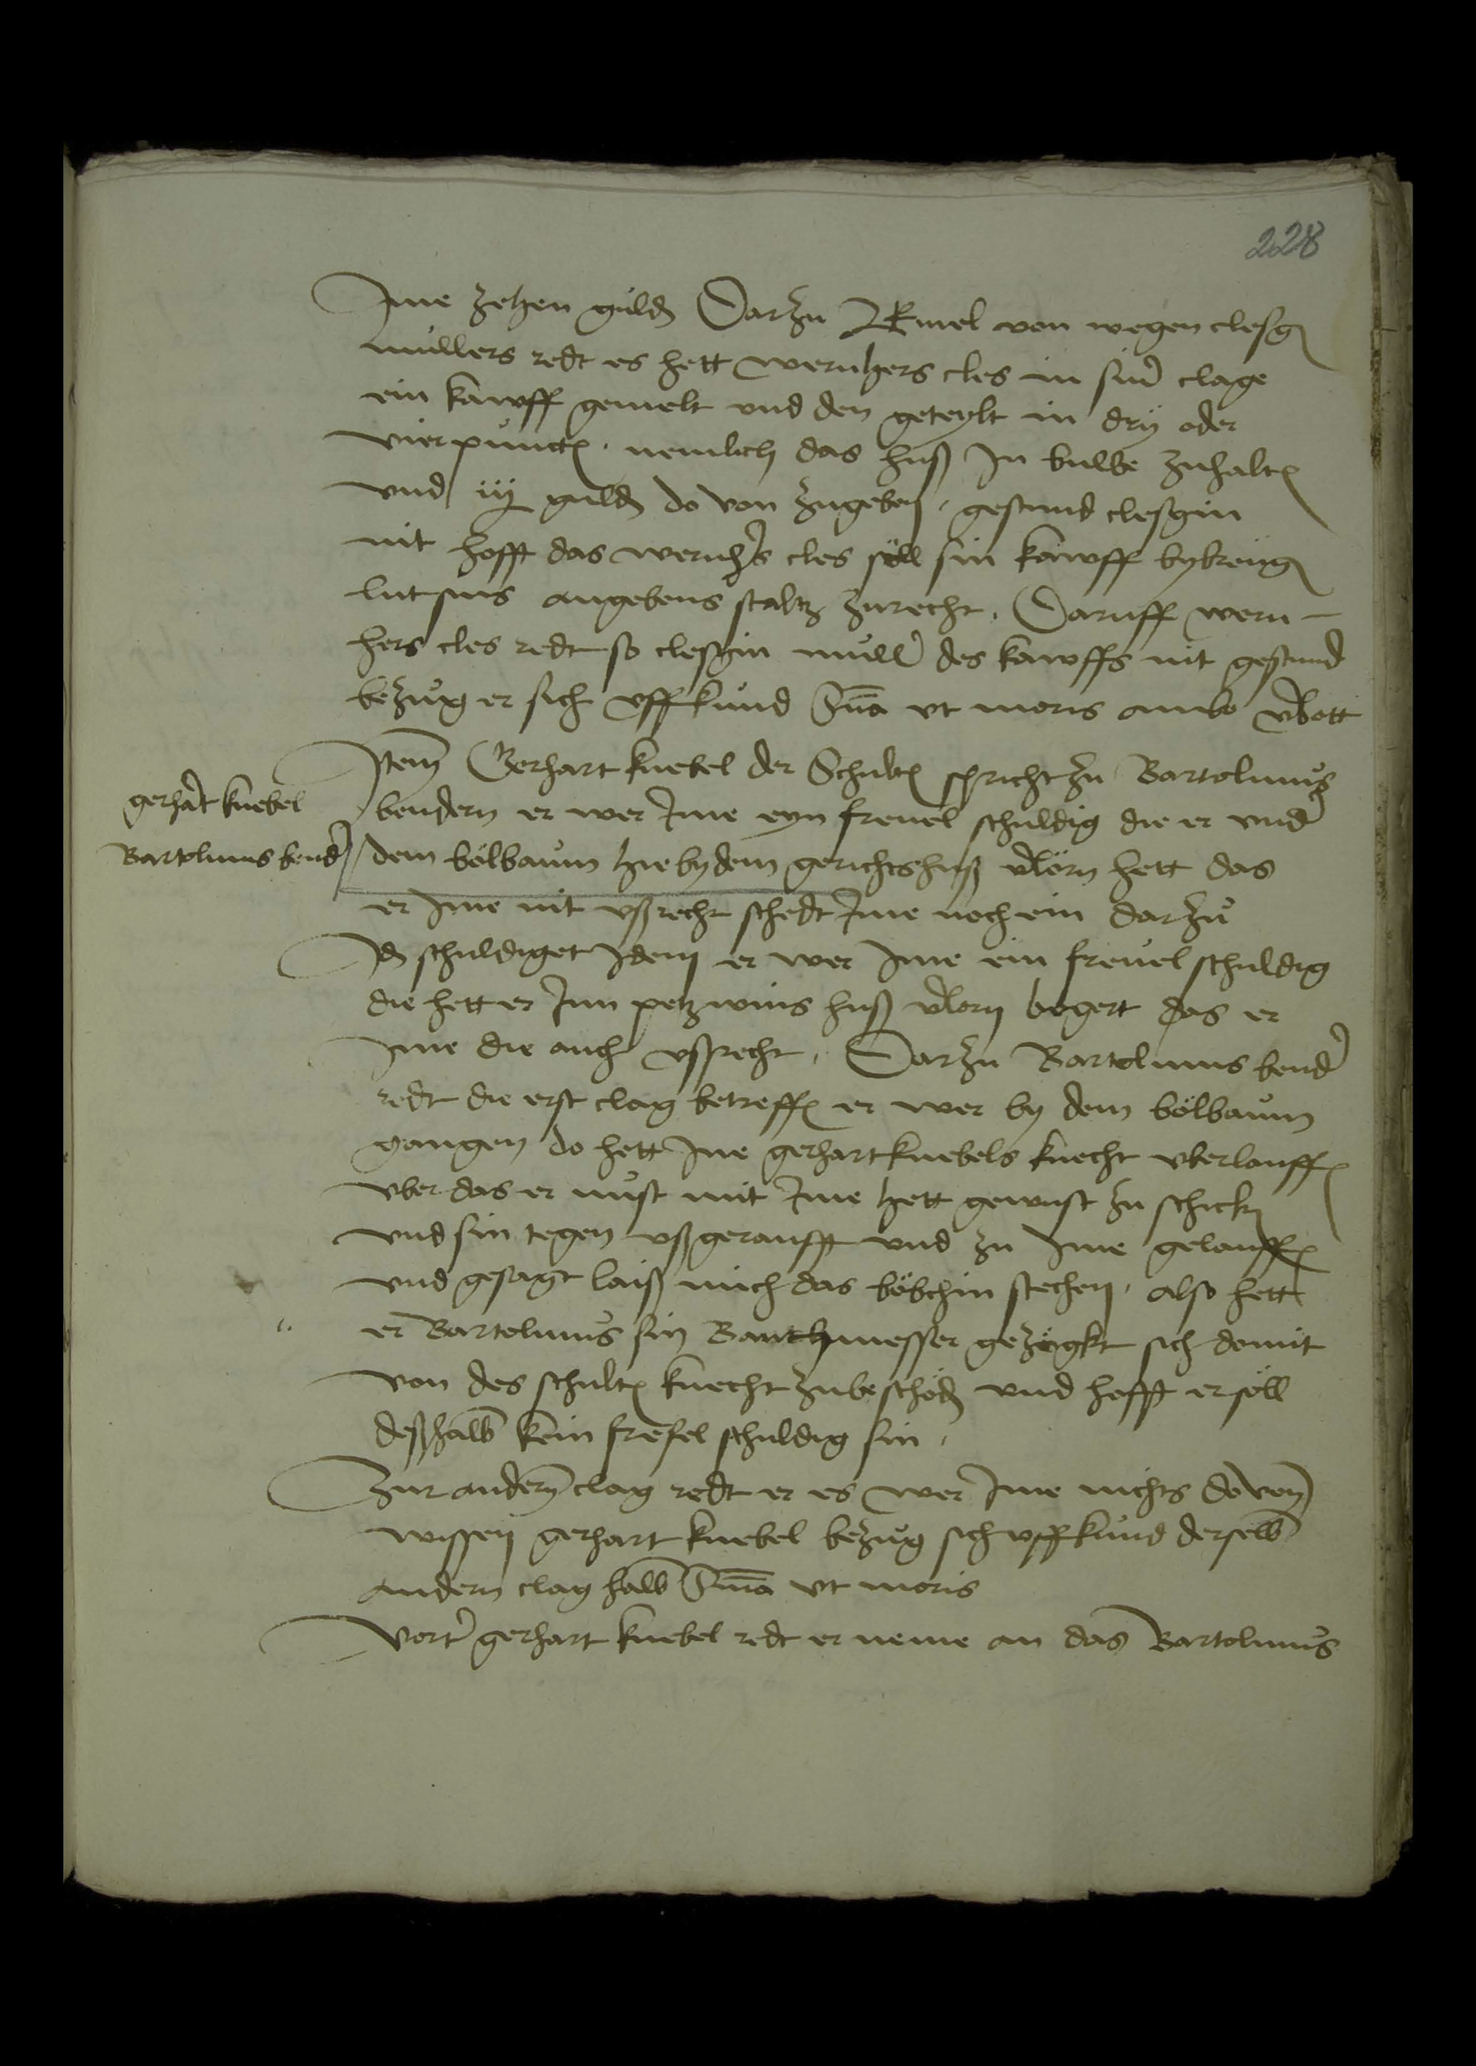 228
Ime zehen guld Darzu Emel von wegen clesg
mullers redt es hett wernhers cles in sin clage
ein kawff gemelt vnd den geteylt in dry oder
vier punct nemlich das huß In bulbe zuhalt
vnd iij guld do von zugeben gestund clesgin
nit hofft das wernhers cles söll sin kawff bybreng
lut sins angebens staltz zurecht Daruff wern
hers cles redt so clesgin mull des kawffs nit gestund
bezug er sich vff kund Sma vt moris ambo vbott
Item Gerhart knebel der Schult spricht zu Bartolmus
gerhart knebel
Bartolmus bend
bendern er wer Ime eyn freuel schuldig die er vnd
dem bölbaum hie by dem gerichtshuß vlorn hett das
er Ime nit vßrecht schedt Ime noch ein darzu
Id schuldiget Idem er wer Ime ein freuel schuldig
die hett er Inn petz wins huß vlorn begert das er
Ime die auch vßrecht Darzu Bartolmus bend
redt die erst clag betreff er wer by dem bölbaum
gangen do hett Ine gerhart knebels knecht vberlauff
vber das er nust mit Ime hett gewust zu schick
vnd sin tegen vßgeraufft vnd zu Ime gelauff
vnd gesagt laiß mich das böbchin stechen also hett
er Bartolmus sin Bauchmesser gezögkt sich domit
von des schult knecht zubeschöd vnd hofft er söll
deßhalb kein frefel schuldig sin
Zur andern clag redt er es wer Ime nichts do von
wissen gerhart knebel bezug sich vff kund derselb
andern clag halb Sma vt moris
Vort gerhart knebel redt er neme an das Bartolmus